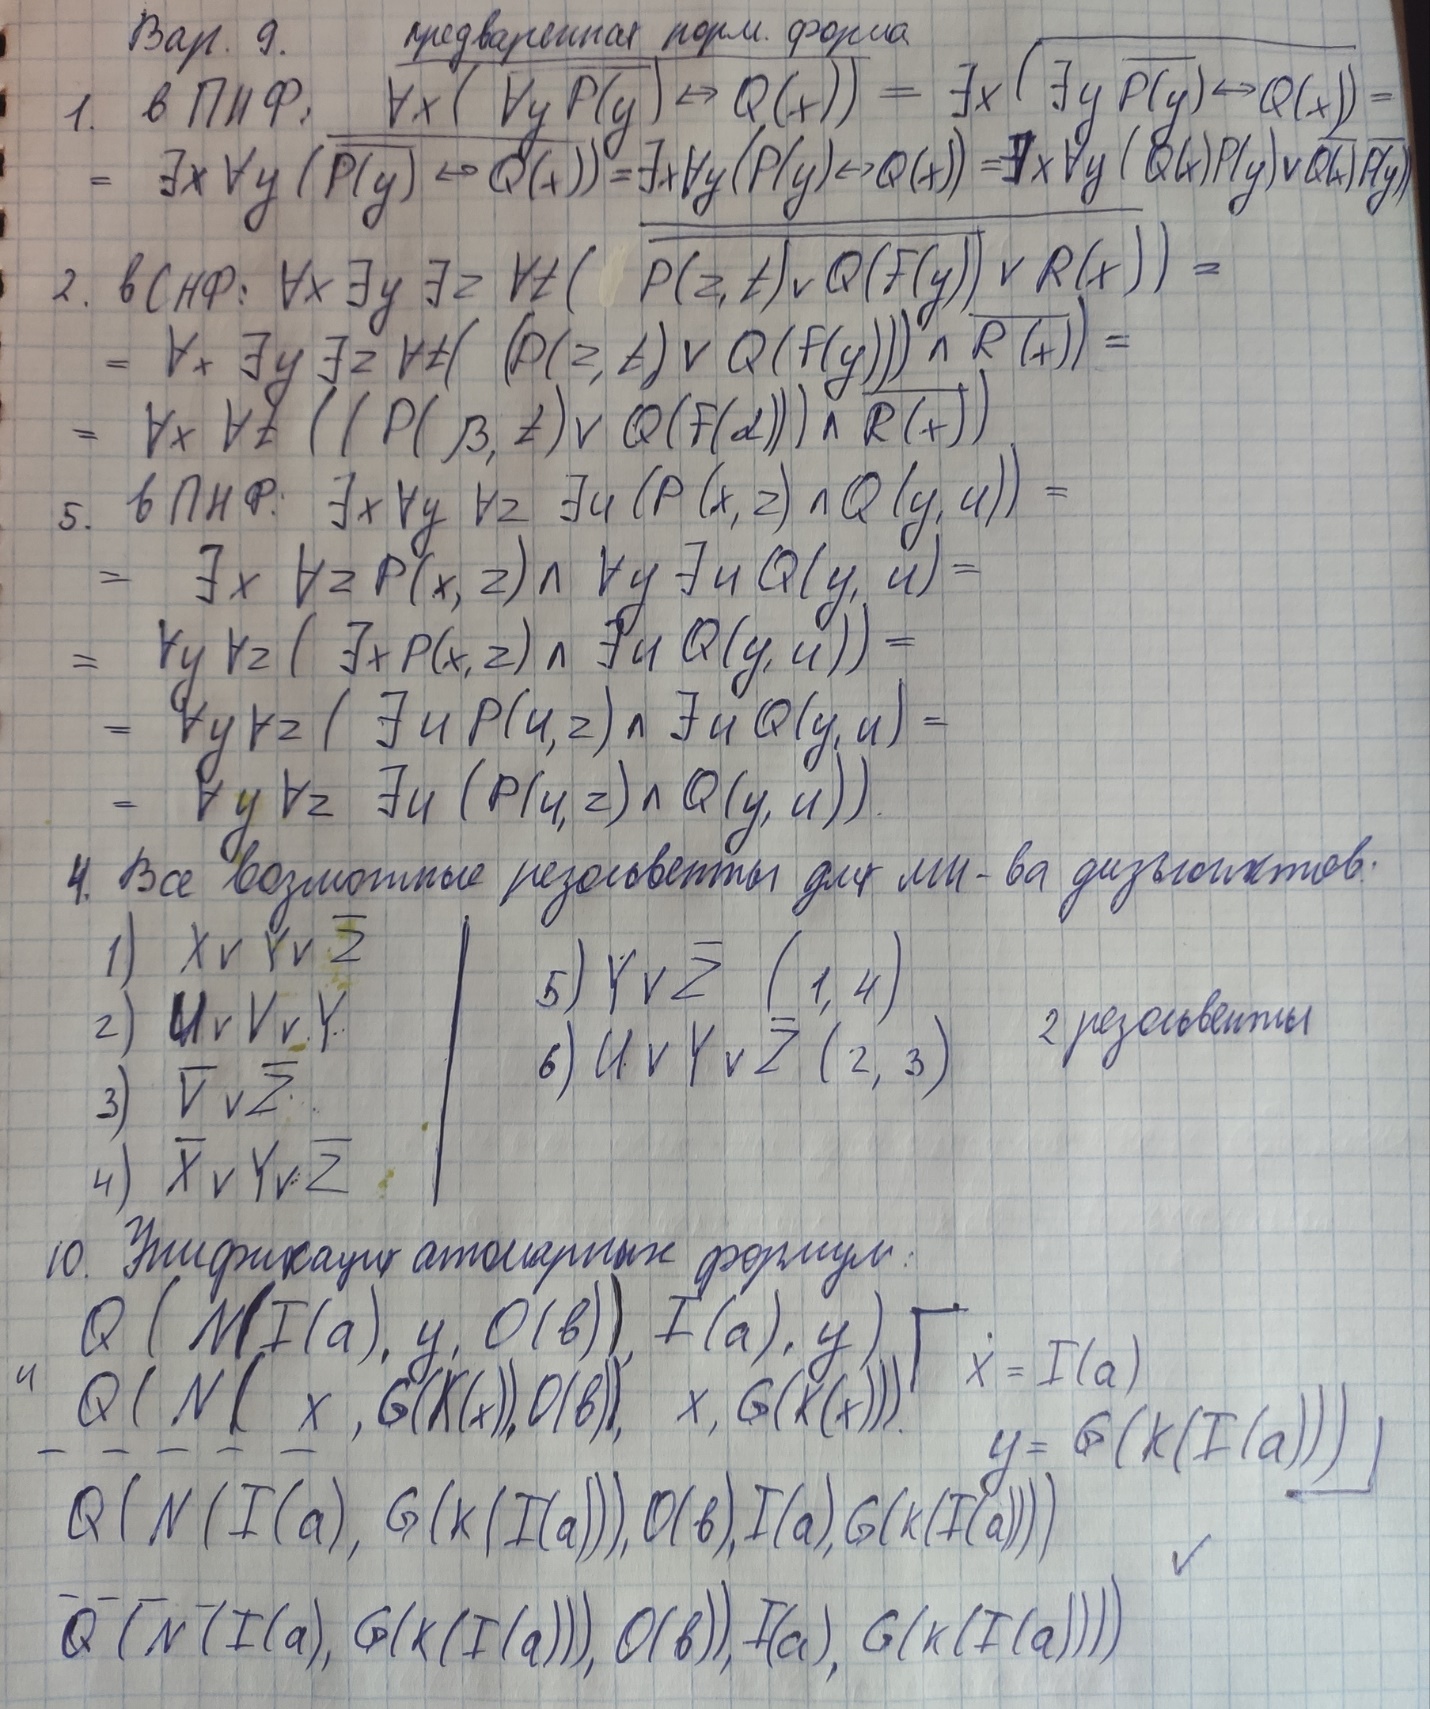 Вар. 9. предваренная норм. форма
1. в ПНФ: ∀x( ∀y P(y) ↔ Q(x)) = ∃x( ∃y P̅(̅y̅)̅ ↔ Q(x)) =
= ∃x ∀y (P̅(̅y̅)̅ ↔ Q(x)) = ∃x∀y(P(y)↔Q(x)) = ∃x∀y ( Q(x)P(y) ∨ Q̅(̅x̅)̅ P̅(̅y̅)̅)
2. в СНФ: ∀x ∃y ∃z ∀t( P(z, t) ∨ Q(F(y)) ∨ R(x)) =
= ∀x ∃y ∃z ∀t( (P(z, t) ∨ Q(F(y))) ∧ R̅(̅x̅)̅) =
= ∀x ∀t ( ( P( β, t) ∨ Q(F(α))) ∧ R̅(̅x̅)̅)
5. в ПНФ: ∃x ∀y ∀z ∃u (P(x, z) ∧ Q(y, u)) =
= ∃x ∀z P(x, z) ∧ ∀y ∃u Q(y, u) =
= ∀y ∀z ( ∃x P(x, z) ∧ ∃u Q(y, u)) =
= ∀y ∀z ( ∃u P(u, z) ∧ ∃u Q(y, u) =
= ∀y ∀z ∃u (P(u, z) ∧ Q(y, u)).
4. Все возможные резольвенты для мн-ва дизъюнктов:
1) X ∨ Y ∨ Z̅
2) U ∨ V ∨ Y
3) V̅ ∨ Z̅
4) X̅ ∨ Y ∨ Z̅
5) Y ∨ Z̅ (1, 4)
6) U ∨ Y ∨ Z̅ (2, 3)
2 резольвенты
10. Унификация атомарных формул:
Q ( N(I(a), y, O(в)), I(a), y)
и Q( N( x , G(K(x)), O(в)), x, G(K(x))).
x = I(a)
y = G(K(I(a)))
Q(N(I(a), G(K(I(a))), O(в), I(a), G(K(I(a))))
✓
Q(N(I(a), G(K(I(a))), O(в)), I(a), G(K(I(a))))